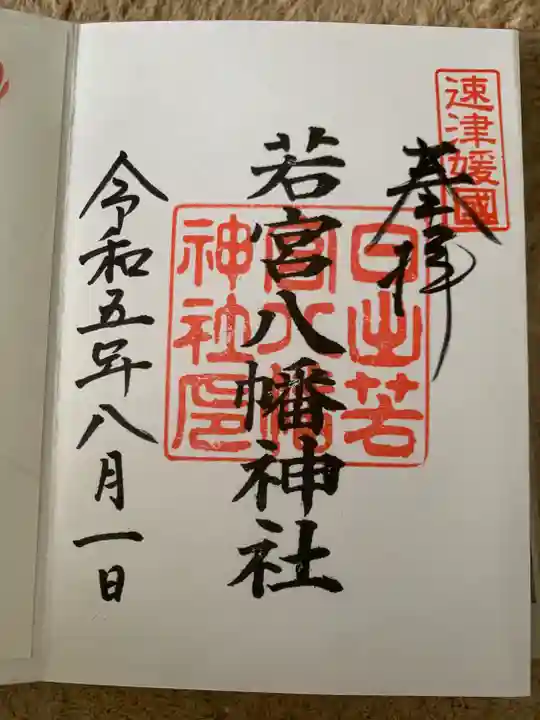 速津媛國
奉拝
日出若
宮八幡
神社印
若宮八幡神社
令和五年八月一日